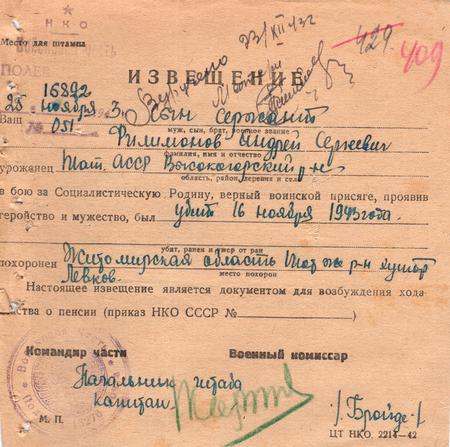 НКО
Место для штампа
23/XII-43г
429.
409
ИЗВЕЩЕНИЕ
Вручено
16892
25 ноября 3
Ваш Сын Сержант
051
муж, сын, брат, военное звание
Филимонов Андрей Сергеевич
фамилия, имя и отчество
уроженец Тат. АССР Высокогорский р-н
область, район, деревня и село
в бою за Социалистическую Родину, верный воинской присяге, проявив
геройство и мужество, был убит 16 ноября 1943 года.
убит, ранен и умер от ран
похоронен Житомирская область р-н хутор
Левков.
место похорон
Настоящее извещение является документом для возбуждения хода-
ства о пенсии (приказ НКО СССР №
Командир части Военный комиссар
Начальник штаба
капитан /Бройде/
М. П.
ЦТ НКО. 2214—42